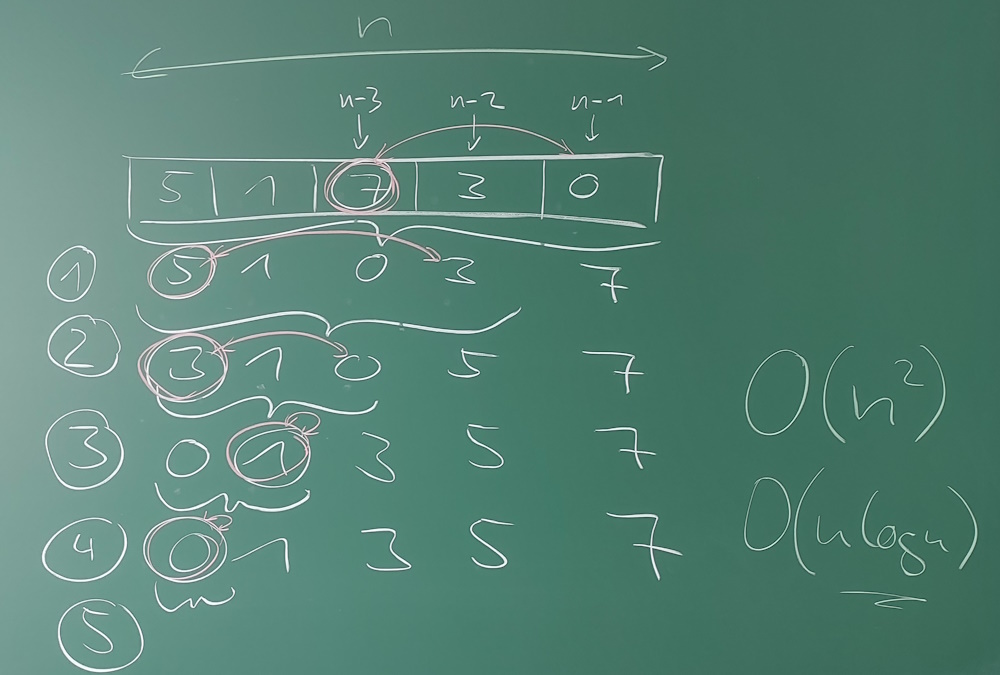 n
n-3 n-2 n-1
5 1 7 3 0
1 5 1 0 3 7
2 3 1 0 5 7
O(n²)
3 0 1 3 5 7
4 0 1 3 5 7
O(n log n)
5